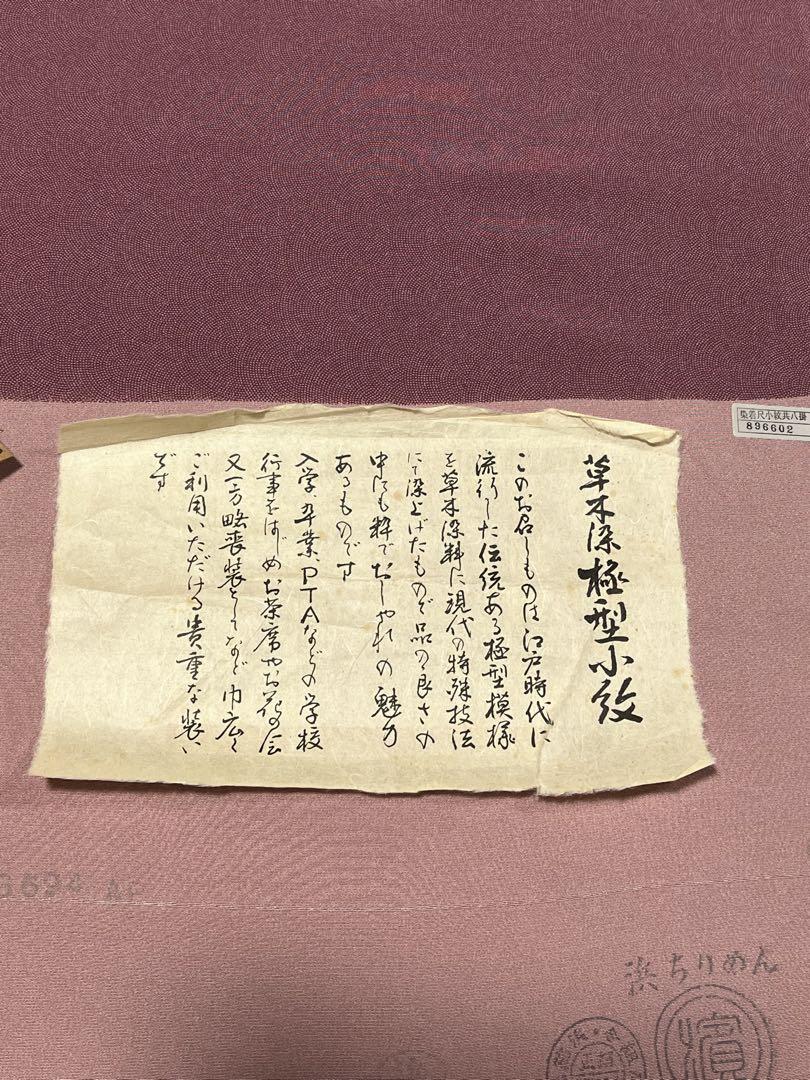 草木染極型小紋
このお召しものは江戸時代に
流行した伝統ある極型模様
を草木染料に現代の特殊技法
にて染上げたもので品の良さの
中にも粋でおしゃれの魅力
あるものです
入学、卒業、PTAなどの学校
行事をはじめお茶席やお花の会
又一方略喪装としてなど巾広く
ご利用いただける貴重な装い
です
染着尺小紋共八掛
896602
浜ちりめん
濱